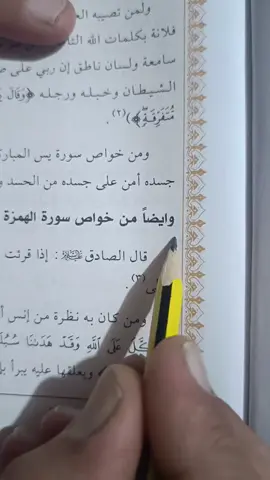 ولمن تصيبه
فلانة بكلمات الله
سامعة ولسان ناطق إن ربي على
الشيطان وخيله ورجله ﴿وَقَالَ
مُتَفَرِّقَةٍ﴾(٢).
ومن خواص سورة يس
جسده أمن على جسده من الحسد
وايضاً من خواص سورة الهمزة
قال الصادق ﷺ: إذا قرئت
(٣).
ومن كان به نظرة من إنس
عَلَى اللَّهِ وَقَدْ هَدَىٰنَا
ويعلقها عليه يبرأ